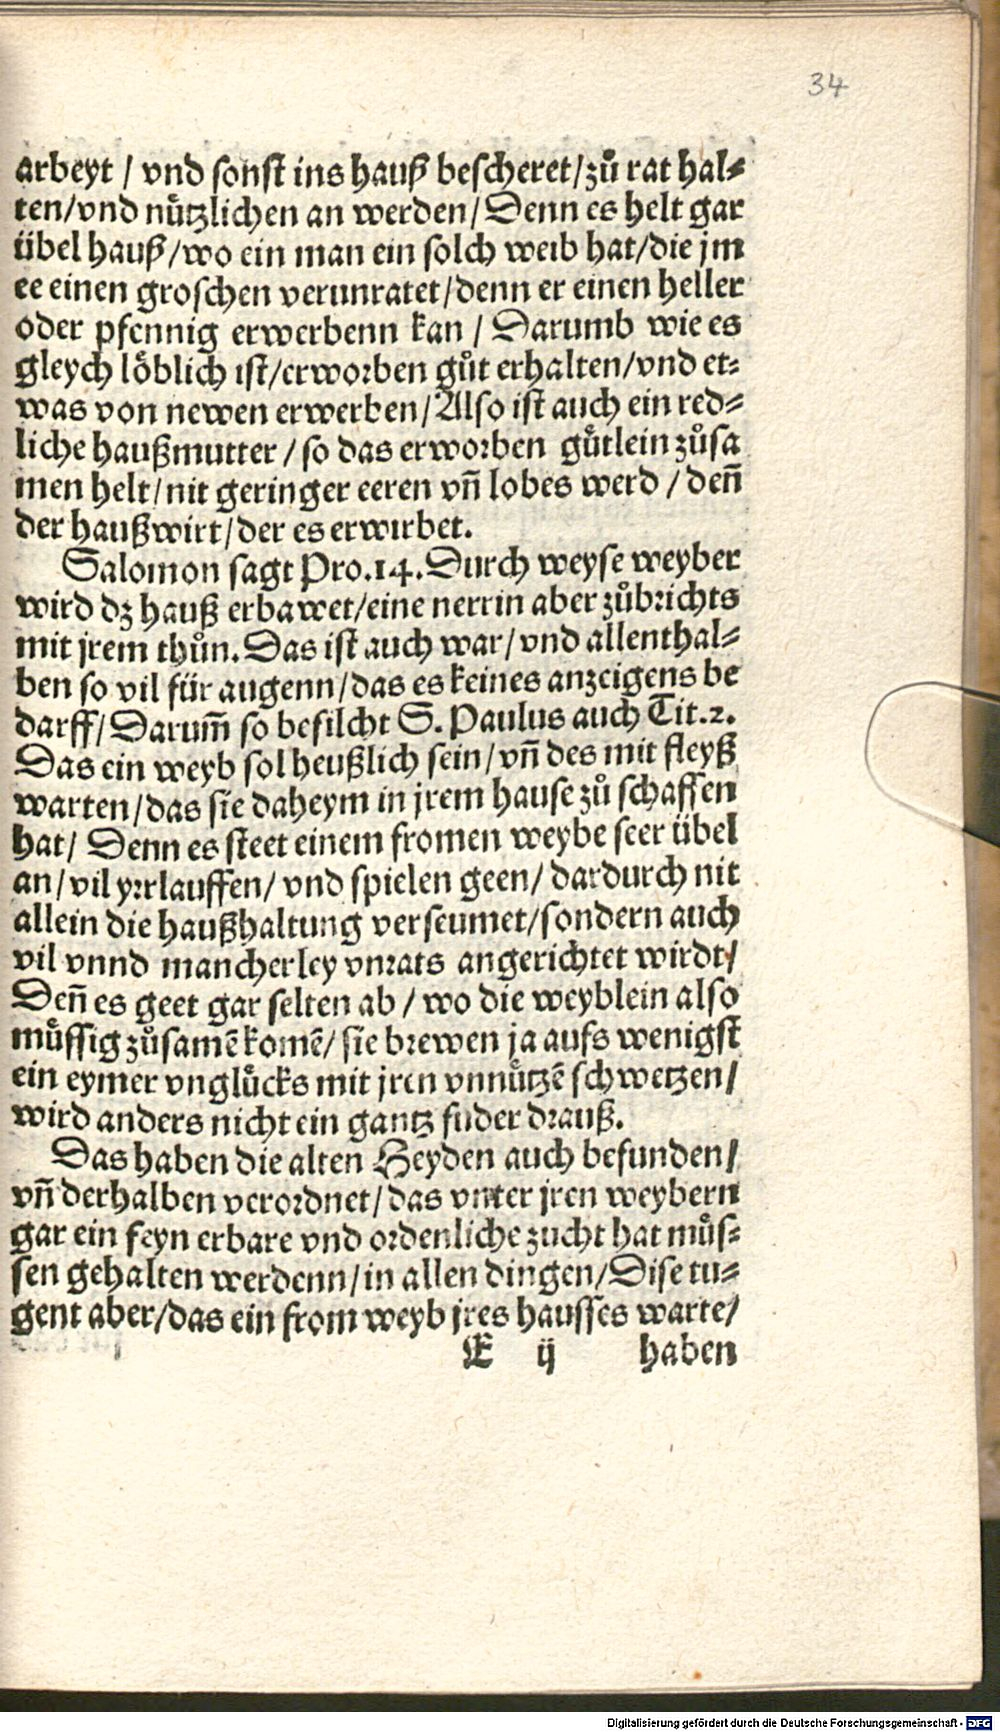 34
arbeyt / vnd sonst ins hauß bescheret/zů rat hal⸗
ten/vnd nützlichen an werden/Denn es helt gar
übel hauß/wo ein man ein solch weib hat/die jm
ee einen groschen verunratet/denn er einen heller
oder pfennig erwerbenn kan / Darumb wie es
gleych löblich ist/erworben gůt erhalten/vnd et⸗
was von newen erwerben/Also ist auch ein red⸗
liche haußmutter / so das erworben gütlein zůsa
men helt/nit geringer eeren vñ lobes werd / deñ
der haußwirt/der es erwirbet.
Salomon sagt Pro.14.Durch weyse weyber
wird dz hauß erbawet/eine nerrin aber zůbrichts
mit jrem thůn.Das ist auch war/vnd allenthal⸗
ben so vil für augenn/das es keines anzeigens be
darff/Darum̃ so befilcht S.Paulus auch Tit.2.
Das ein weyb sol heußlich sein/vñ des mit fleyß
warten/das sie daheym in jrem hause zů schaffen
hat/ Denn es steet einem fromen weybe seer übel
an/vil yrrlauffen/ vnd spielen geen/ dardurch nit
allein die haußhaltung verseumet/sondern auch
vil vnnd mancherley vnrats angerichtet wirdt/
Deñ es geet gar selten ab / wo die weyblein also
müssig zůsamẽ komẽ/ sie brewen ja aufs wenigst
ein eymer vnglücks mit jren vnnützẽ schwetzen/
wird anders nicht ein gantz fuder drauß.
Das haben die alten Heyden auch befunden/
vñ derhalben verordnet/das vnter jren weybern
gar ein feyn erbare vnd ordenliche zucht hat müs⸗
sen gehalten werdenn/in allen dingen/Dise tu⸗
gent aber/das ein from weyb jres hausses warte/
E ij haben
Digitalisierung gefördert durch die Deutsche Forschungsgemeinschaft - DFG